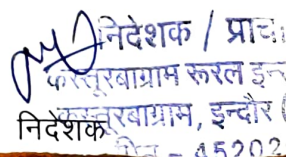 निदेशक / प्राचा
कस्तूरबाग्राम रूरल इन्स
कस्तूरबाग्राम, इन्दौर (
निदेशक
पिन - 45202